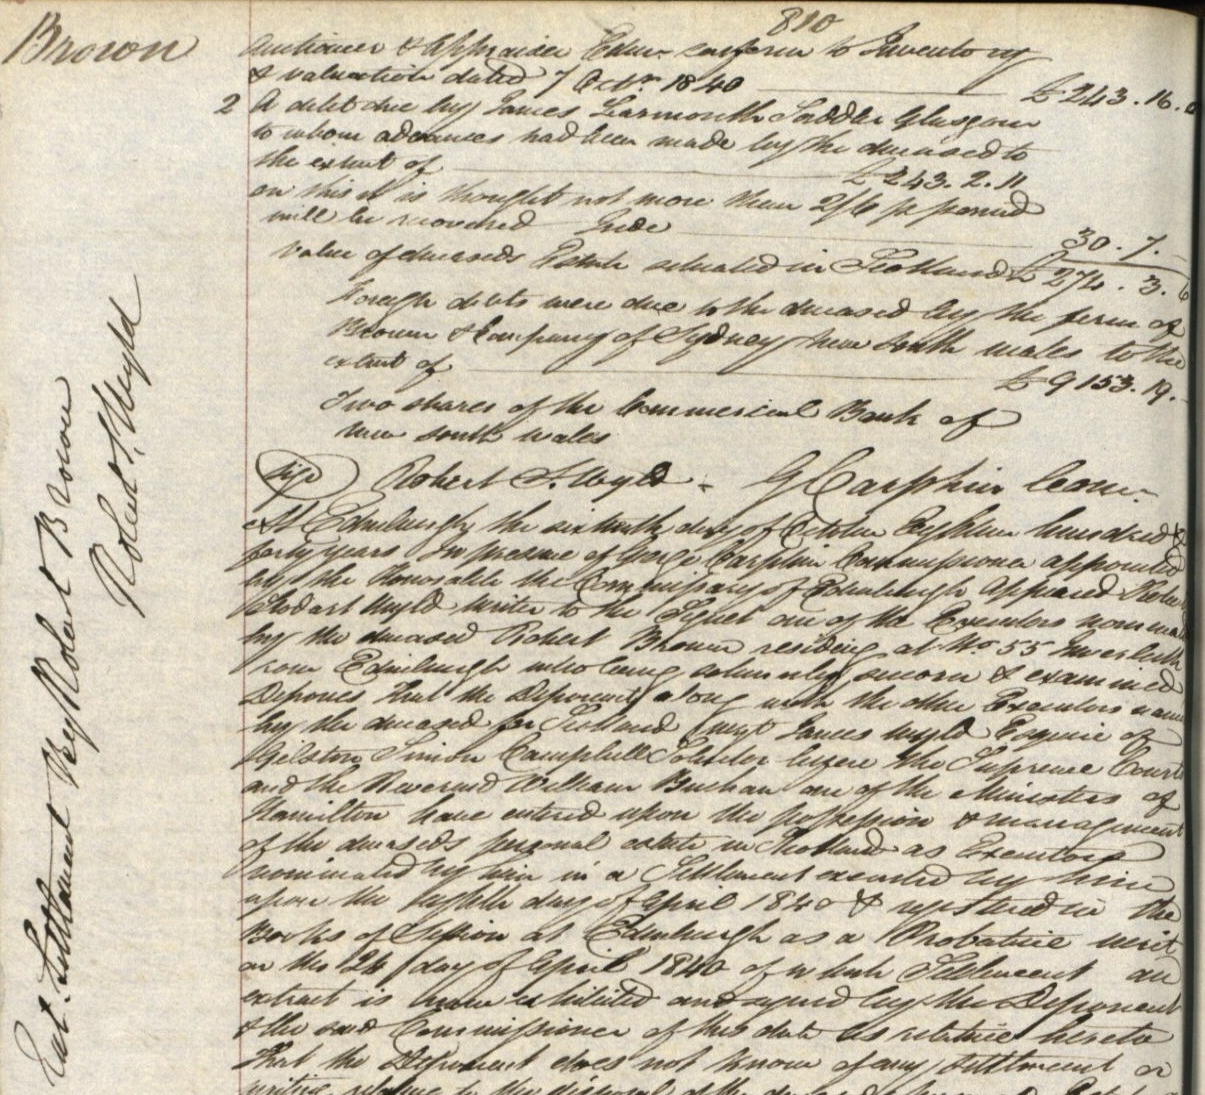 810
Brown
Auctioneer & Appraiser Edinr conform to Inventory
& valuation dated 7 Octr 1840 £243.16.
2 A debt due by James Learmonth Saddler Glasgow
to whom advances had been made by the deceased to
the extent of £243.2.11
on this it is thought not more than 2/6 p pound
will be recovered Inde 30.7.
Value of deceaseds Estate situated in Scotland £274.3.6
Foreign debts were due to the deceased by the firm of
Brown & Company of Sydney New South Wales to the
extent of £9153.19.
Two shares of the Commercial Bank of
New South Wales
(Sigd) Robert S. Wyld - G Carphin Comr
At Edinburgh the sixteenth day of October Eighteen hundred &
forty years In presence of George Carphin Commissioner appointed
by the Honorable the Commissary of Edinburgh Appeared Robert
Stodart Wyld Writer to the Signet one of the Executors nominated
by the deceased Robert Brown residing at No 55 Inverleith
row Edinburgh who being solemnly sworn & examined
Depones That the Deponent along with the other Executors named
by the deceased for Scotland James Wyld Esquire of
Gilston Simon Campbell Solicitor before the Supreme Court
and the Reverend William Buchan one of the Ministers of
Hamilton have entered upon the possession & management
of the deceaseds personal estate in Scotland as Executors
nominated by him in a Settlement executed by him
upon the Eighth day of April 1840 & registered in the
Books of Session at Edinburgh as a Probative writ
on the 24 day of April 1840 of which Settlement an
extract is now exhibited and signed by the Deponent
& the said Commissioner of this date as relative hereto
That the Deponent does not know of any settlement or
writing relative to the disposal of the deceaseds personal Estate
Ext. Settlement Robert Brown
Robert S. Wyld